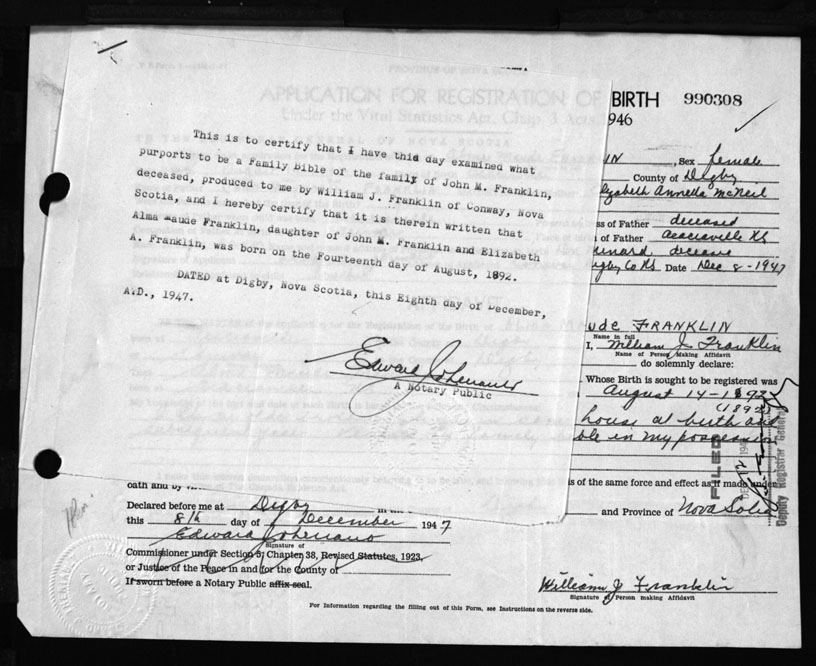 APPLICATION FOR REGISTRATION OF BIRTH 990308
Under the Vital Statistics Act, Chap. 1946
This is to certify that I have this day examined what
purports to be a Family Bible of the family of John M. Franklin,
deceased, produced to me by William J. Franklin of Conway, Nova
Scotia, and I hereby certify that it is therein written that
Alma Maude Franklin, daughter of John M. Franklin and Elizabeth
A. Franklin, was born on the Fourteenth day of August, 1892.
DATED at Digby, Nova Scotia, this Eighth day of December,
A.D., 1947.
A Notary Public
IN , Sex female
County of Digby
Elizabeth Annetta McNeil
ss of Father deceased
of Father Acaciaville NS
decease
Digby Co NS Date Dec 8-1947
ude FRANKLIN
Name in full
I, William J. Franklin
Name of Person Making Affidavit
do solemnly declare:
Whose Birth is sought to be registered was
August 14-1892
(1892)
house at birth and
ble in my possession
is of the same force and effect as if made under
and Province of Nova Scotia
FILED
DEC 12 194
Deputy Registrar General
oath and by
Declared before me at Digby in the
this 8th day of December 1947
Signature of
Commissioner under Section 5, Chapter 38, Revised Statutes, 1923,
or Justice of the Peace in and for the County of
If sworn before a Notary Public affix seal.
William J Franklin
Signature of Person making Affidavit
For Information regarding the filling out of this Form, see Instructions on the reverse side.